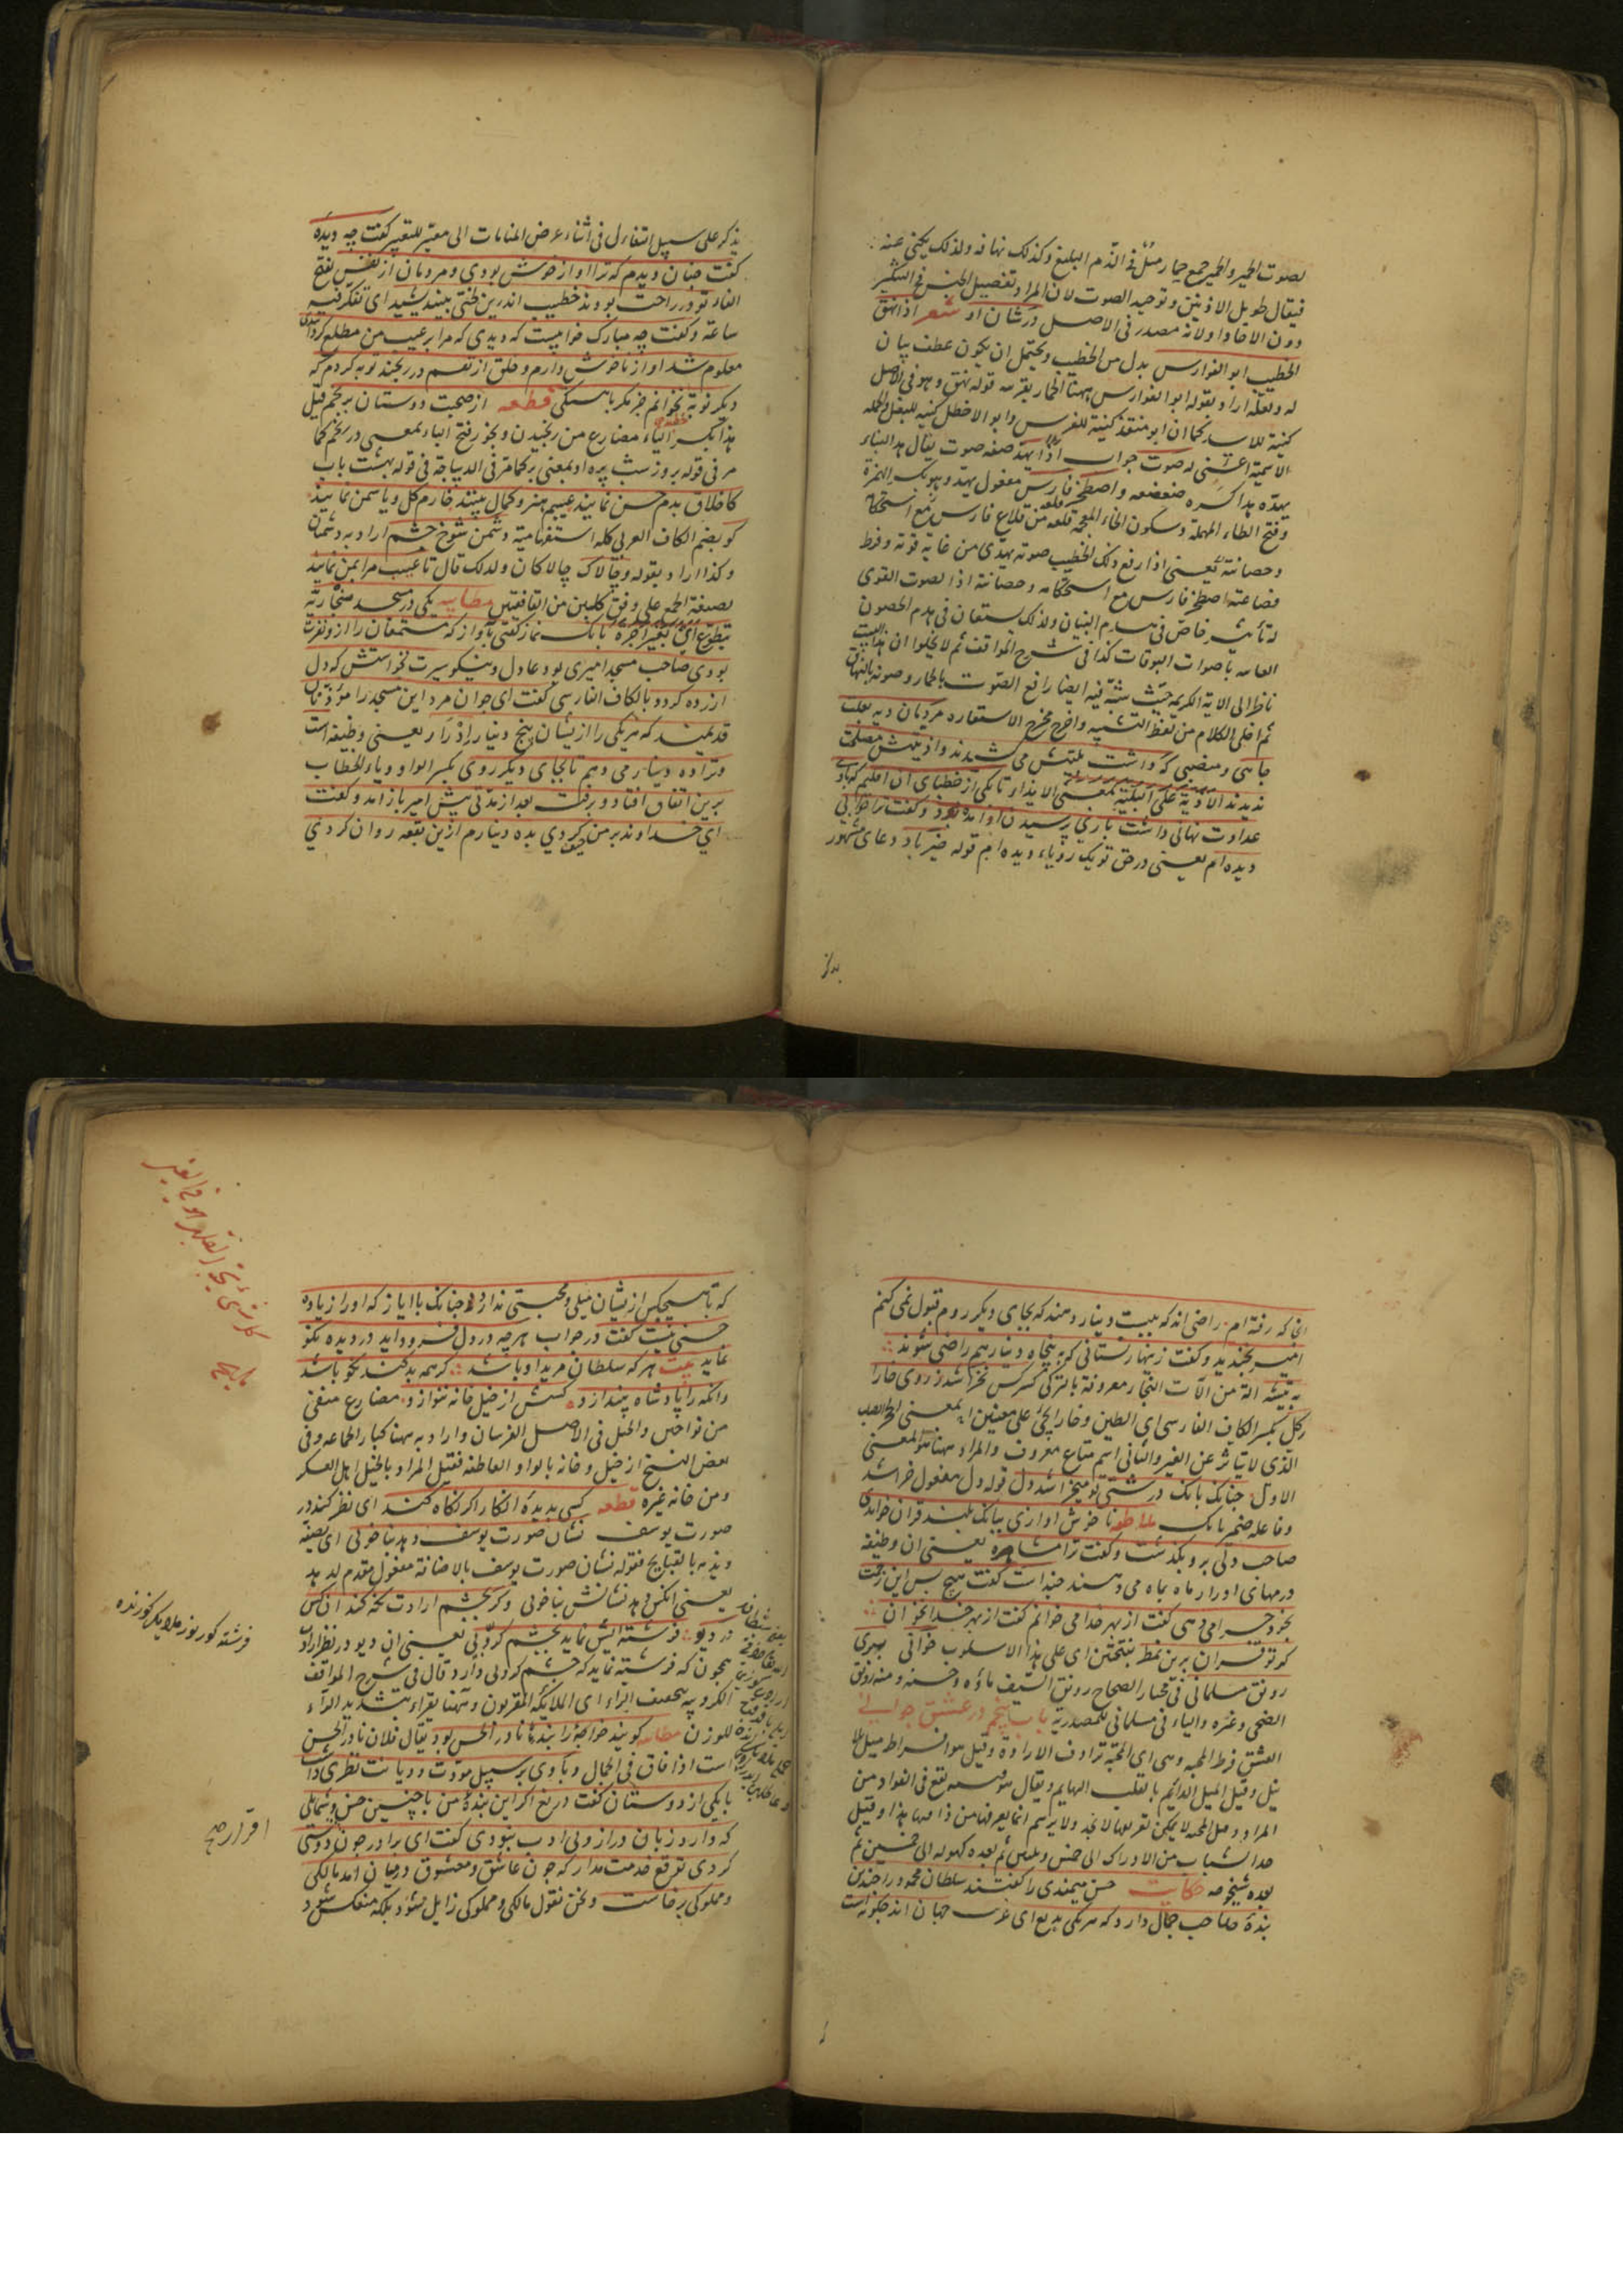 لصوت الحمير والحمير جمع حمار مثل فى الذم البليغ وكذلك نهاقه ولذلك يكنى عنه
فيقال طويل الاذنين وتوحيد الصوت لان المراد تفصيل الجنس فى النكير
دون الافاد اولانه مصدر فى الاصل درشان او شعر اذا نهق
الخطيب ابو الفوارس بدل من الخطيب ويحتمل ان يكون عطف بيان
له ولعله اراد بقوله ابو الفوارس ههنا الحمار بقرينه قوله نهق وهو فى الاصل
كنية للاسد كما ان ابو منقذ كنية للفرس وابو الاخطل كنية للبغل والجمله
الاسمية اعنى له صوت جواب اذا يهد صفه صوت يقال هد البناء
يهده هدا كسره ضعضعه واصطخر فارس مفعول يهد وهو بكسر الهمزة
وفتح الطاء المهملة وسكون الخاء المعجمه قلعه من قلاع فارس مع استحكام
وحصانة يعنى اذا رفع ذلك الخطيب صوته يهدى من غاية قوته وفرط
فضاعته اصطخر فارس مع استحكامه وحصانة اذا لصوت القوى
له تأثير خاص فى هدم البنيان ولذلك يستعان فى هدم الحصون
العاليه باصوات البوقات كذا فى شرح المواقف ثم لا يخلو ان هذا البيت
ناظر الى الاية الكريمه حيث شبه فيه ايضا رافع الصوت بالحمار وصوته بالنهاق
ثم اخلى الكلام من لفظ التشبيه واخرج مخرج الاستعاره مردمان ديه بعلت
جاهى ومنصبى كه داشت بليتش مى كشيدند واذيتش مصلحت
نديدند الاذية على البلية بمعنى الايذاء تا يكى از خطباى آن اقليم كه باوى
عداوت نهانى داشت بارى بپرسيدن او آمده بود وكفت ترا خوابى
ديده ام يعنى در حق تو يك روياء ديده ام قوله خير باد دعاى مشهور
يذكر على سبيل التفاءل فى اثناء عرض المنامات الى معبر للتعبير كفت چه ديدۀ
كفت چنان ديدم كه ترا اواز خوش بودى ومردمان از نفس بفتح
الفاء تو در راحت بودند خطيب اندرين لختى بينديشيد اى تفكر فيه
ساعة وكفت چه مبارك خوابيست كه ديدى كه مرا بر عيب من مطلع كردانيدى
معلوم شد اواز ناخوش دارم وخلق از نفسم در رنجند توبه كردم كه
ديكر نوبة نخوانم خطبه جز مكر باهستكى قطعه از صحبت دوستان برنجم قيل
هذا بكسر الباء مضارع من رنجيدن ويجوز فتح الباء بمعنى در رنجم كما
مر فى قوله بروز شب پره او بمعنى بر كما مر فى الديباجة فى قوله بهشت باب
كاخلاق بدم حسن نمايند عيبم هنر وكمال بينند خارم كل وياسمن نمايند
كو بضم الكاف العربى كلمه استفهامية دشمن شوخ چشم اراد به دشمنان
وكذا اراد بقوله وچالاك چالاكان ولذلك قال تا عيب مرا بمن نمايند
بصيغة الجمع على وفق كلبين من القافيتين مطايبه يكى در مسجد سنجاريه
بتطوع اى بغير اجره بانك نماز كفتى باواز كه مستمعان را ازو نفرت
بودى صاحب مسجد اميرى بود عادل ونيكو سيرت نخواستش كه دل
ازرده كردد بالكاف الفارسى كفت اى جوان مرد اين مسجد را مؤذنان
قديمند كه هر يكى را ازيشان پنج دينار ادرار يعنى وظيفه است
وترا ده دينار مى دهم تا بجاى ديكر روى بكسر الواو وياء الخطاب
برين اتفاق افتاد وبرفت بعد از مدتى پيش امير باز امد وكفت
اى خداوند بر من حيف كردى بده دينارم ازين بقعه روان كردى
انجا كه رفته ام راضى اند كه بيست دينار دهند كه بجاى ديكر روم قبول نمى كنم
امير بخنديد وكفت زينهار نستانى كه به پنجاه دينار هم راضى شوند
به تيشه الة من الات النجار معروفة بالتركى كسر كس نخراشد ز روى خارا
كل بكسر الكاف الفارسى اى الطين وخارا يجئ على معنيين بمعنى الحجر الصلب
الذى لا يتاثر عن الغير والثانى اسم متاع معروف والمراد ههنا هو المعنى
الاول چنانك بانك درشتى تو ميخراشد دل قوله دل مفعول خراشد
وفاعله ضمير بانك مطايبه ناخوش اوازى ببانك بلند قران خواندى
صاحب دلى برو بكذشت وكفت ترا مشاهره يعنى ان وظيفه
درمهاى ادرار ماه بماه مى دهند چند است كفت هيچ پس اين زحمت
بخود چرا مى دهى كفت از بهر خدا مى خوانم كفت از بهر خدا مخوان
كر تو قران برين نمط بفتحتين اى على هذا الاسلوب خوانى ببرى
رونق مسلمانى فى مختار الصحاح رونق السيف ماؤه وحسنه ومنه رونق
الضحى وغيره والياء فى مسلمانى للمصدرية باب پنجم در عشق جوانى
العشق فرط المحبه وهى اى المحبة ترادف الارادة وقيل هو افراط ميل بلا
نيل وقيل الميل الدائم بالقلب الهايم ويقال
المراد وهل المحبه لا يمكن تعريفها لا بحد ولا برسم انما يعرفها من ذاقها هذا وقيل
حد الشباب من الادراك الى خمس وثلثين ثم بعده كهوله الى خمسين ثم
بعده شيخوخه حكايت حسن ميمندى را كفتند سلطان محمود را چندين
بندۀ صاحب جمال دارد كه هر يكى بديع اى غريب جهان اند چكونه است
كه با هيچكس ازيشان ميلى ومحبتى ندارد چنانك با اياز كه اورا زياده
حسنى نيست كفت در جواب هر چه در دل فرود ايد در ديده نكو
نمايد بيت هر كه سلطان مريد او باشد كر همه بد كند نكو باشد
وانكه را پادشاه بيندازد كسش از خيل خانه ننوازد مضارع منفى
من نواختن والخيل فى الاصل الفرسان واراد به ههنا كبار الجماعه وفى
بعض النسخ از خيل وخانه بالواو العاطفه فقيل المراد بالخيل اهل العسكر
ومن خانه غيره قطعه كسى بديدۀ انكار اكر نكاه كند اى نظر كند در
صورت يوسف نشان صورت يوسف دهد بنا خوبى اى يصفه
وينبه بالقبايح فقوله نشان صورت يوسف بالاضافة مفعول مقدم لدهد
يعنى انكس دهد نشانش بنا خوبى وكر بچشم ارادت نكه كند ان كس
در ديو فرشته ايش نمايد بچشم كروبى يعنى ان ديو در نظر ارادت
همچون كه فرشته نمايد كه چشم كروبى دارد قال فى شرح المواقف
الكروبيه بتخفيف الراء اى الملايكه المقربون وههنا يقراء بتشديد الراء
للوزن مطايبه كويند خواجۀ را بندۀ نادر الحسن بود يقال فلان نادر الحسن
است اذا فاق فى الجمال وباوى بر سبيل مودت وديانت نظرى داشت
با يكى از دوستان كفت دريغ اكر اين بندۀ من با چنين حسن وشمايلى
كه دارد زبان دراز وبى ادب نبودى كفت اى برادر چون دوستى
كردى توقع خدمت مدار كه چون عاشق ومعشوق درميان امد مالكى
ومملوكى برخاست ونحن نقول مالكى ومملوكى زايل نشود بلكه منعكس شود
فرشته كور نور ملايكل كوزنده